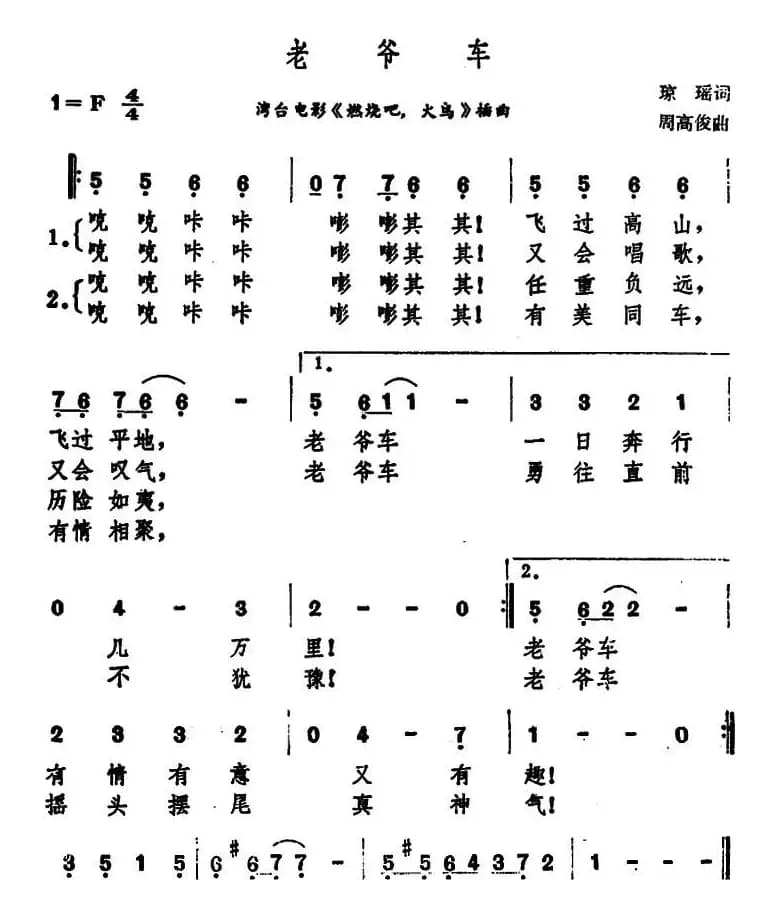 老 爷 车
1=F 4/4
湾台电影《燃烧吧,火鸟》插曲
琼 瑶词
周高俊曲
5 5 6 6 | 0 7 7 6 6 | 5 5 6 6
1. 吭 吭 咔 咔 嘭 嘭其 其! 飞 过 高 山,
吭 吭 咔 咔 嘭 嘭其 其! 又 会 唱 歌,
2. 吭 吭 咔 咔 嘭 嘭其 其! 任 重 负 远,
吭 吭 咔 咔 嘭 嘭其 其! 有 美 同 车,
1. 
7 6 7 6 6 - | 5 6 1 1 - | 3 3 2 1
飞过 平地, 老 爷车 一 日 奔 行
又会 叹气, 老 爷车 勇 往 直 前
历险 如夷,
有情 相聚,
2.
0 4 - 3 | 2 - - 0 :| 5 6 2 2 -
几 万 里! 老 爷车
不 犹 豫! 老 爷车
2 3 3 2 | 0 4 - 7 | 1 - - 0 :||
有 情 有 意 又 有 趣!
摇 头 摆 尾 真 神 气!
3 5 1 5 | 6 #6 7 7 - | 5 #5 6 4 3 7 2 | 1 - - ||